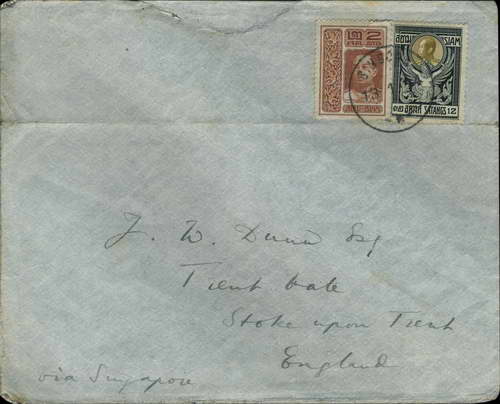 2
SIAM
SATANGS 12
J. W. Dunn Esq
Trent Vale
Stoke upon Trent
England
via Singapore